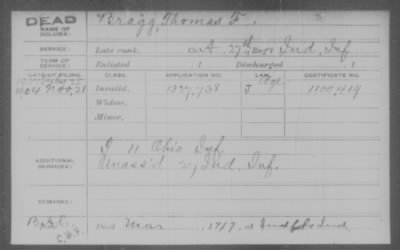 DEAD
NAME OF SOLDIER: Bragg, Thomas F.
SERVICE: Late rank, Co. A, 27th Regt Ind. Inf.
TERM OF SERVICE: Enlisted , 1 Discharged , 1
DATE OF FILING. CLASS. APPLICATION NO. LAW. CERTIFICATE NO.
1904 Nov. 21 Invalid, 1327,738 J Age 1100,419
Widow,
Minor,
ADDITIONAL SERVICES: I 11 Ohio Inf.
Unass'd 27 Ind. Inf.
Died Mar , 1917, at Ind